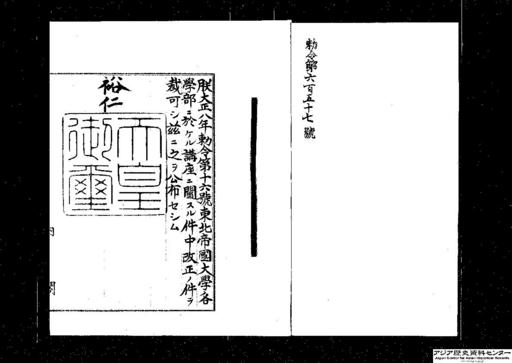 勅令第六百五十七號
朕大正八年勅令第十六號東北帝國大學各
學部ニ於ケル講座ニ關スル件中改正ノ件ヲ
裁可シ玆ニ之ヲ公布セシム
裕仁
天皇
御璽
內閣
アジア歴史資料センター
Japan Center for Asian Historical Records